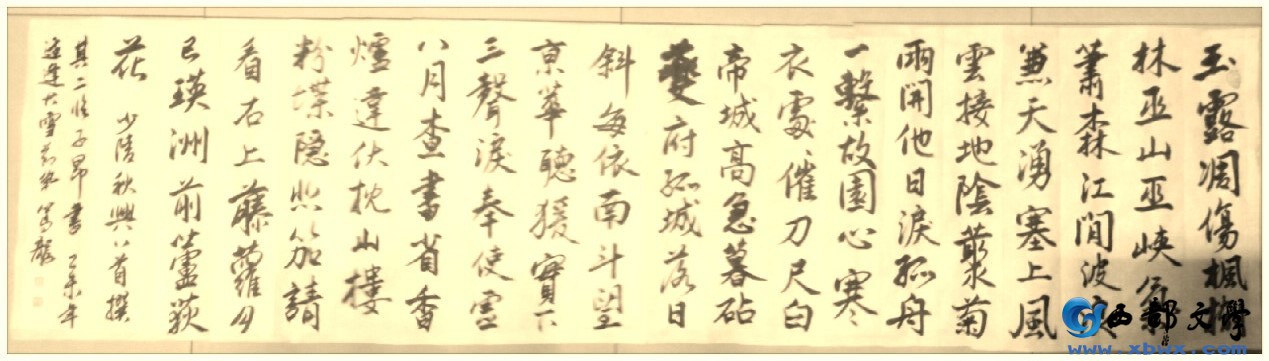 玉露凋傷楓樹
林巫山巫峽氣
蕭森江間波浪
兼天湧塞上風
雲接地陰叢菊
兩開他日淚孤舟
一繫故園心寒
衣處〻催刀尺白
帝城高急暮砧
夔府孤城落日
斜每依南斗望
京華聽猨實下
三聲淚奉使虛
八月查畫省香
爐違伏枕山樓
粉堞隱悲笳請
看石上藤蘿月
已暎洲前蘆荻
花 少陵秋興八首撰
其二临子昂書 乙未年
大雪
西部文學
www.xbwx.com